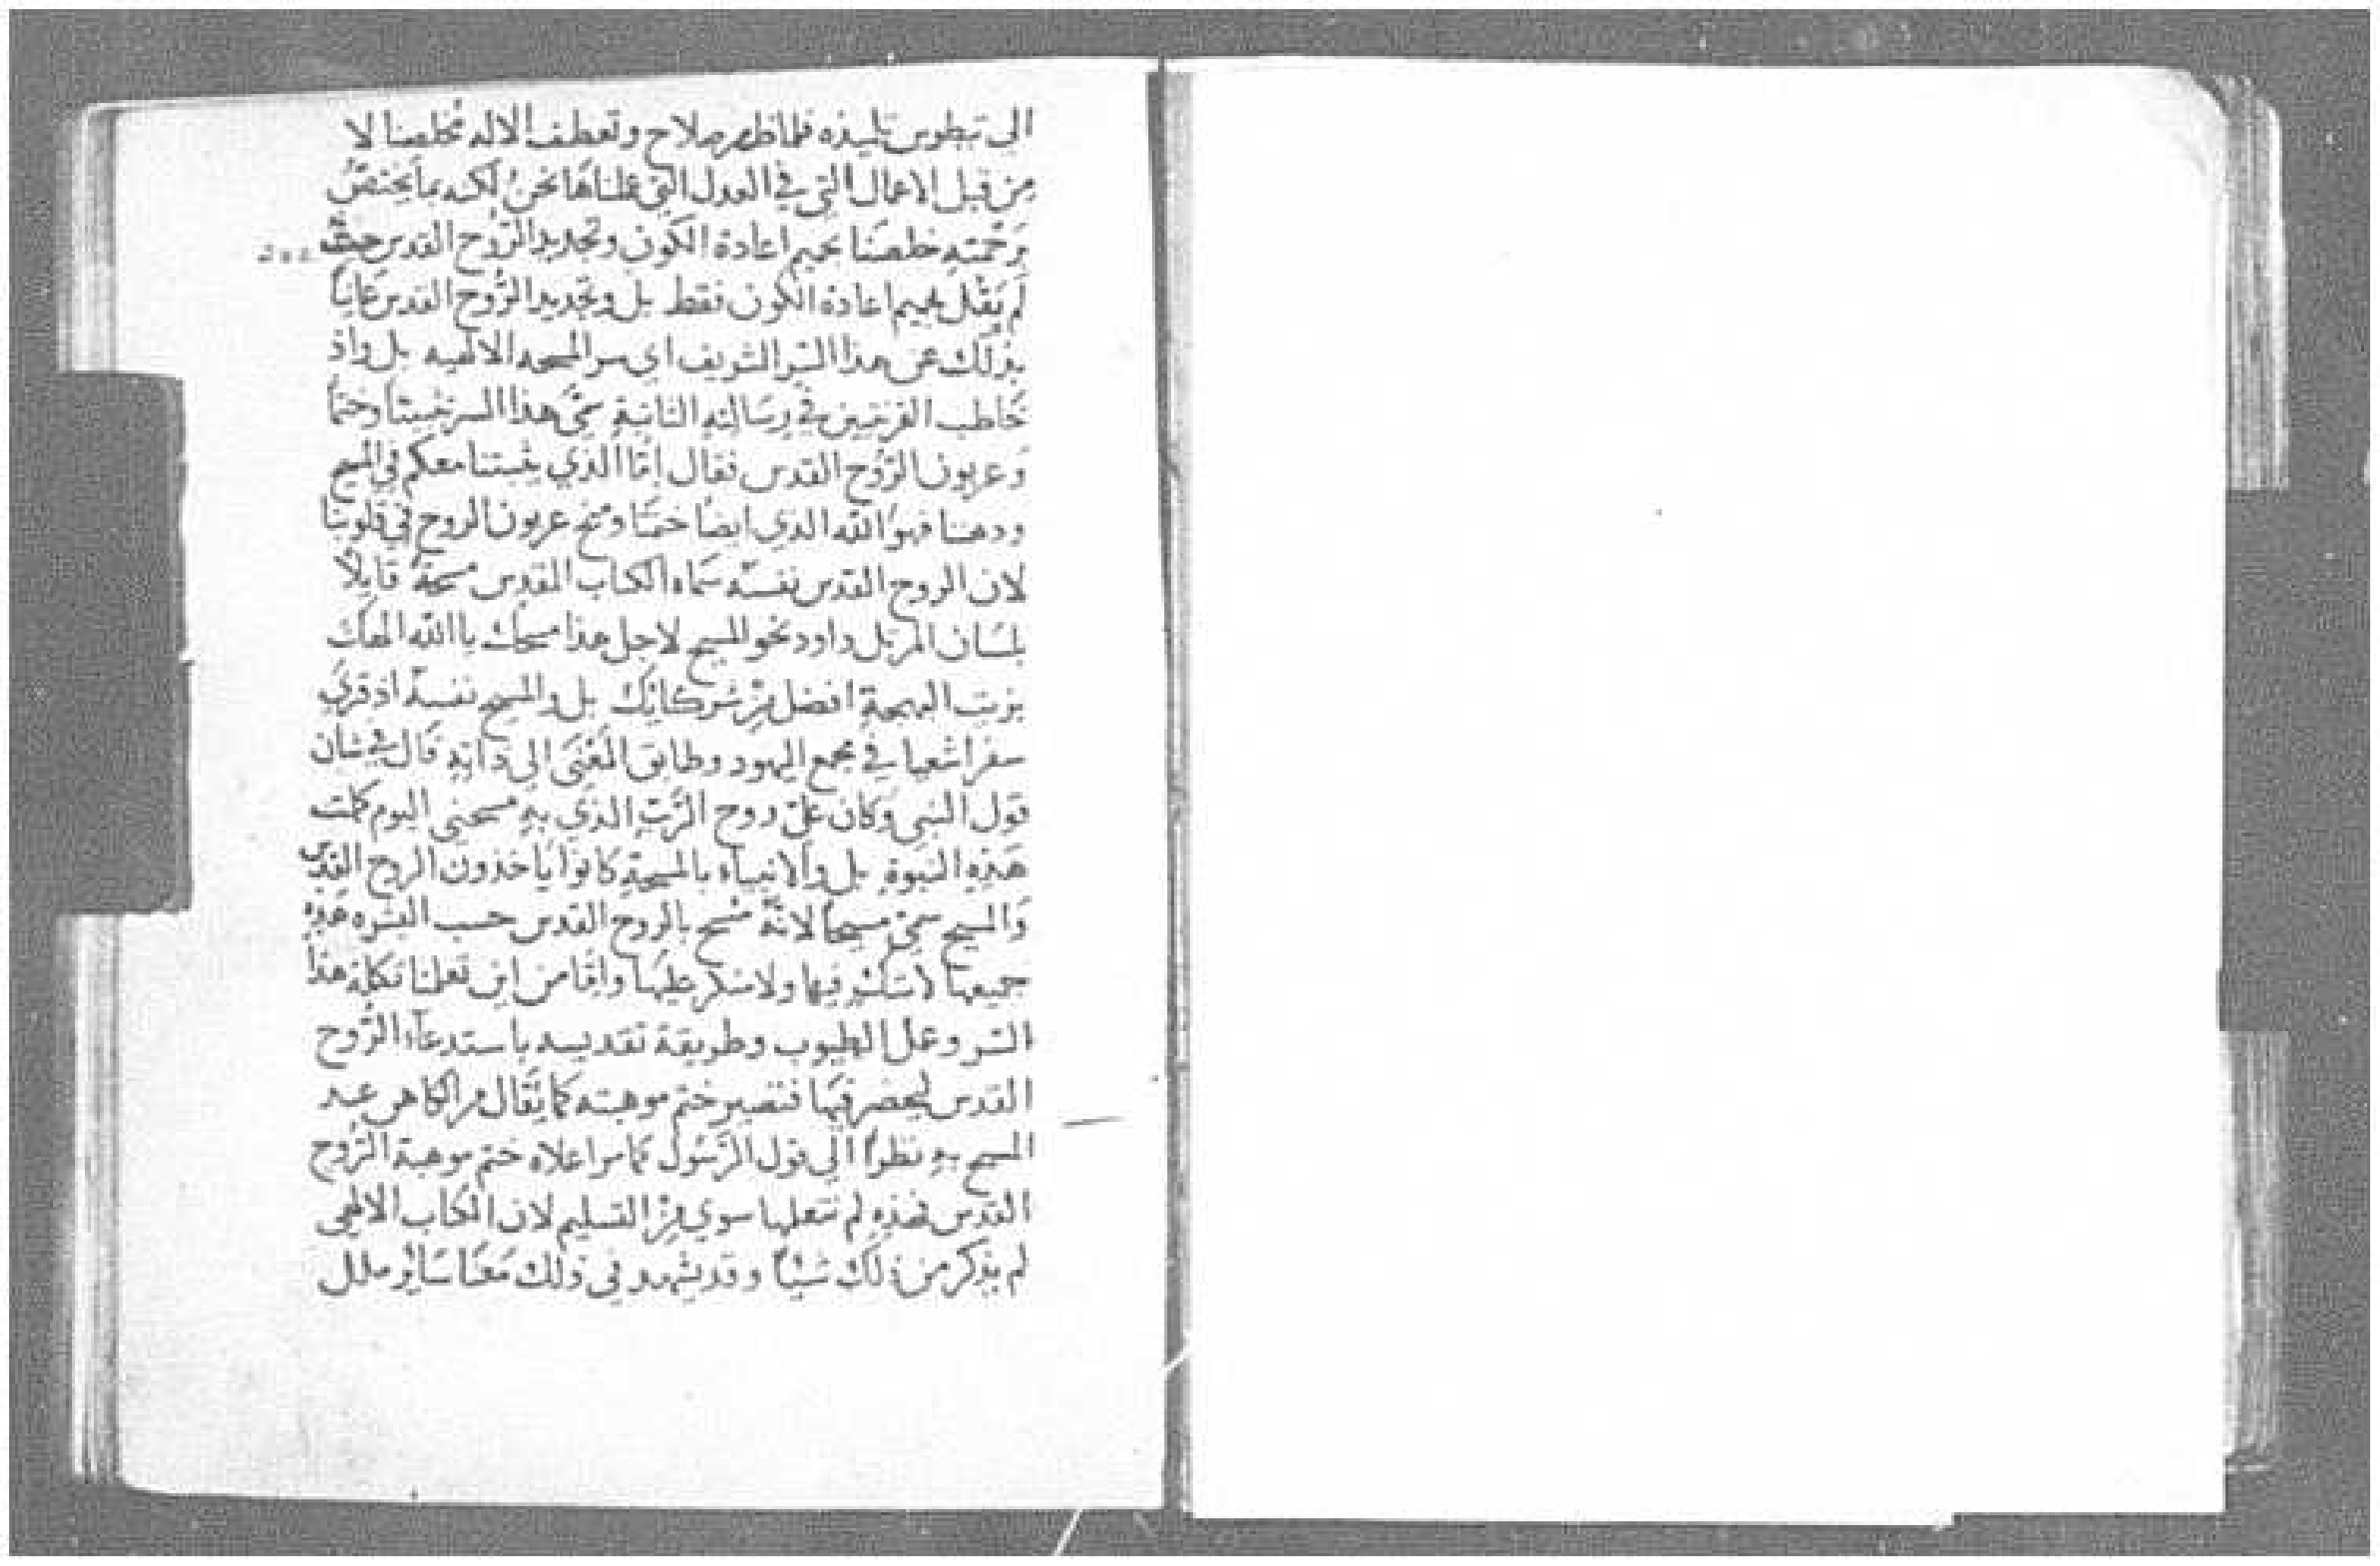 الى تيطوس تلميذه فلما ظهر صلاح وتعطف الاله مخلصنا لا
من قبل الاعمال التي في العدل التي عملناها نحن لكنه بما يختص
برحمته خلصنا بحميم اعادة الكون وتجديد الرّوح القدس حيث
لم يَقُل بحميم اعادة الكون فقط بل وتجديد الرُّوح القدس عانيًا
بذلك عن هذا السّر الشريف اي سر المسحه الالهيه بل واذ
خاطب القرنتيين في رسَالتِهِ الثانيةِ سمّى هذا السر تثبيتا وختمًا
وعربون الرّوُح القدس فقال امّا الذي يثبتنا معكم في المسيح
ودهننا فهوَ اللّه الذي ايضًا ختمنَا ومنح عربون الروح في قلوبَنا
لان الروح القدس نفسَه سَماه الكتاب المقدس مسحةً قايلًا
بلسَان المرتل داود نحو المسيح لاجل هذا مسحك يا اللّه الهك
بزيتِ البهجةِ افضل مِنْ شركايك بل والمسيح نفسهُ اذ قرَي
سفر اشعيا في مجمع اليهود وطابق المَعْنَى الى ذاتِهِ قال في شان
قول النبي وكان عليّ روح الرّبّ الذي بهِ مسحني اليوم كملت
هَذِهِ النبوة بل والانبياء بالمسحةِ كانوا ياخذون الروح القدس
وَالمسيح سمّيَ مسيحًا لانّهُ مُسح بالروح القدس حسب البشره هَذِهِ
جميعها لا نشك فيها ولا ننكر عليها وامّا من اين تعلمنا تكملة هذا
السّر وعمل الطيوب وطريقة تقديسه باستدعآء الرُّوح
القدس ليحضر فيهَا فتصير ختم موهبته كما يُقَال من الكاهن عند
المسح بهِ نظرًا الى قول الرّسُول كما مر اعلاه ختم موهبة الرّوح
القدس فهذِهِ لم نتعلمها سوى مِنْ التسليم لان الكتاب الالهي
لم يذكر من ذلك شيًا وقد يشهد في ذلك مَعَنا سَايْر ملل